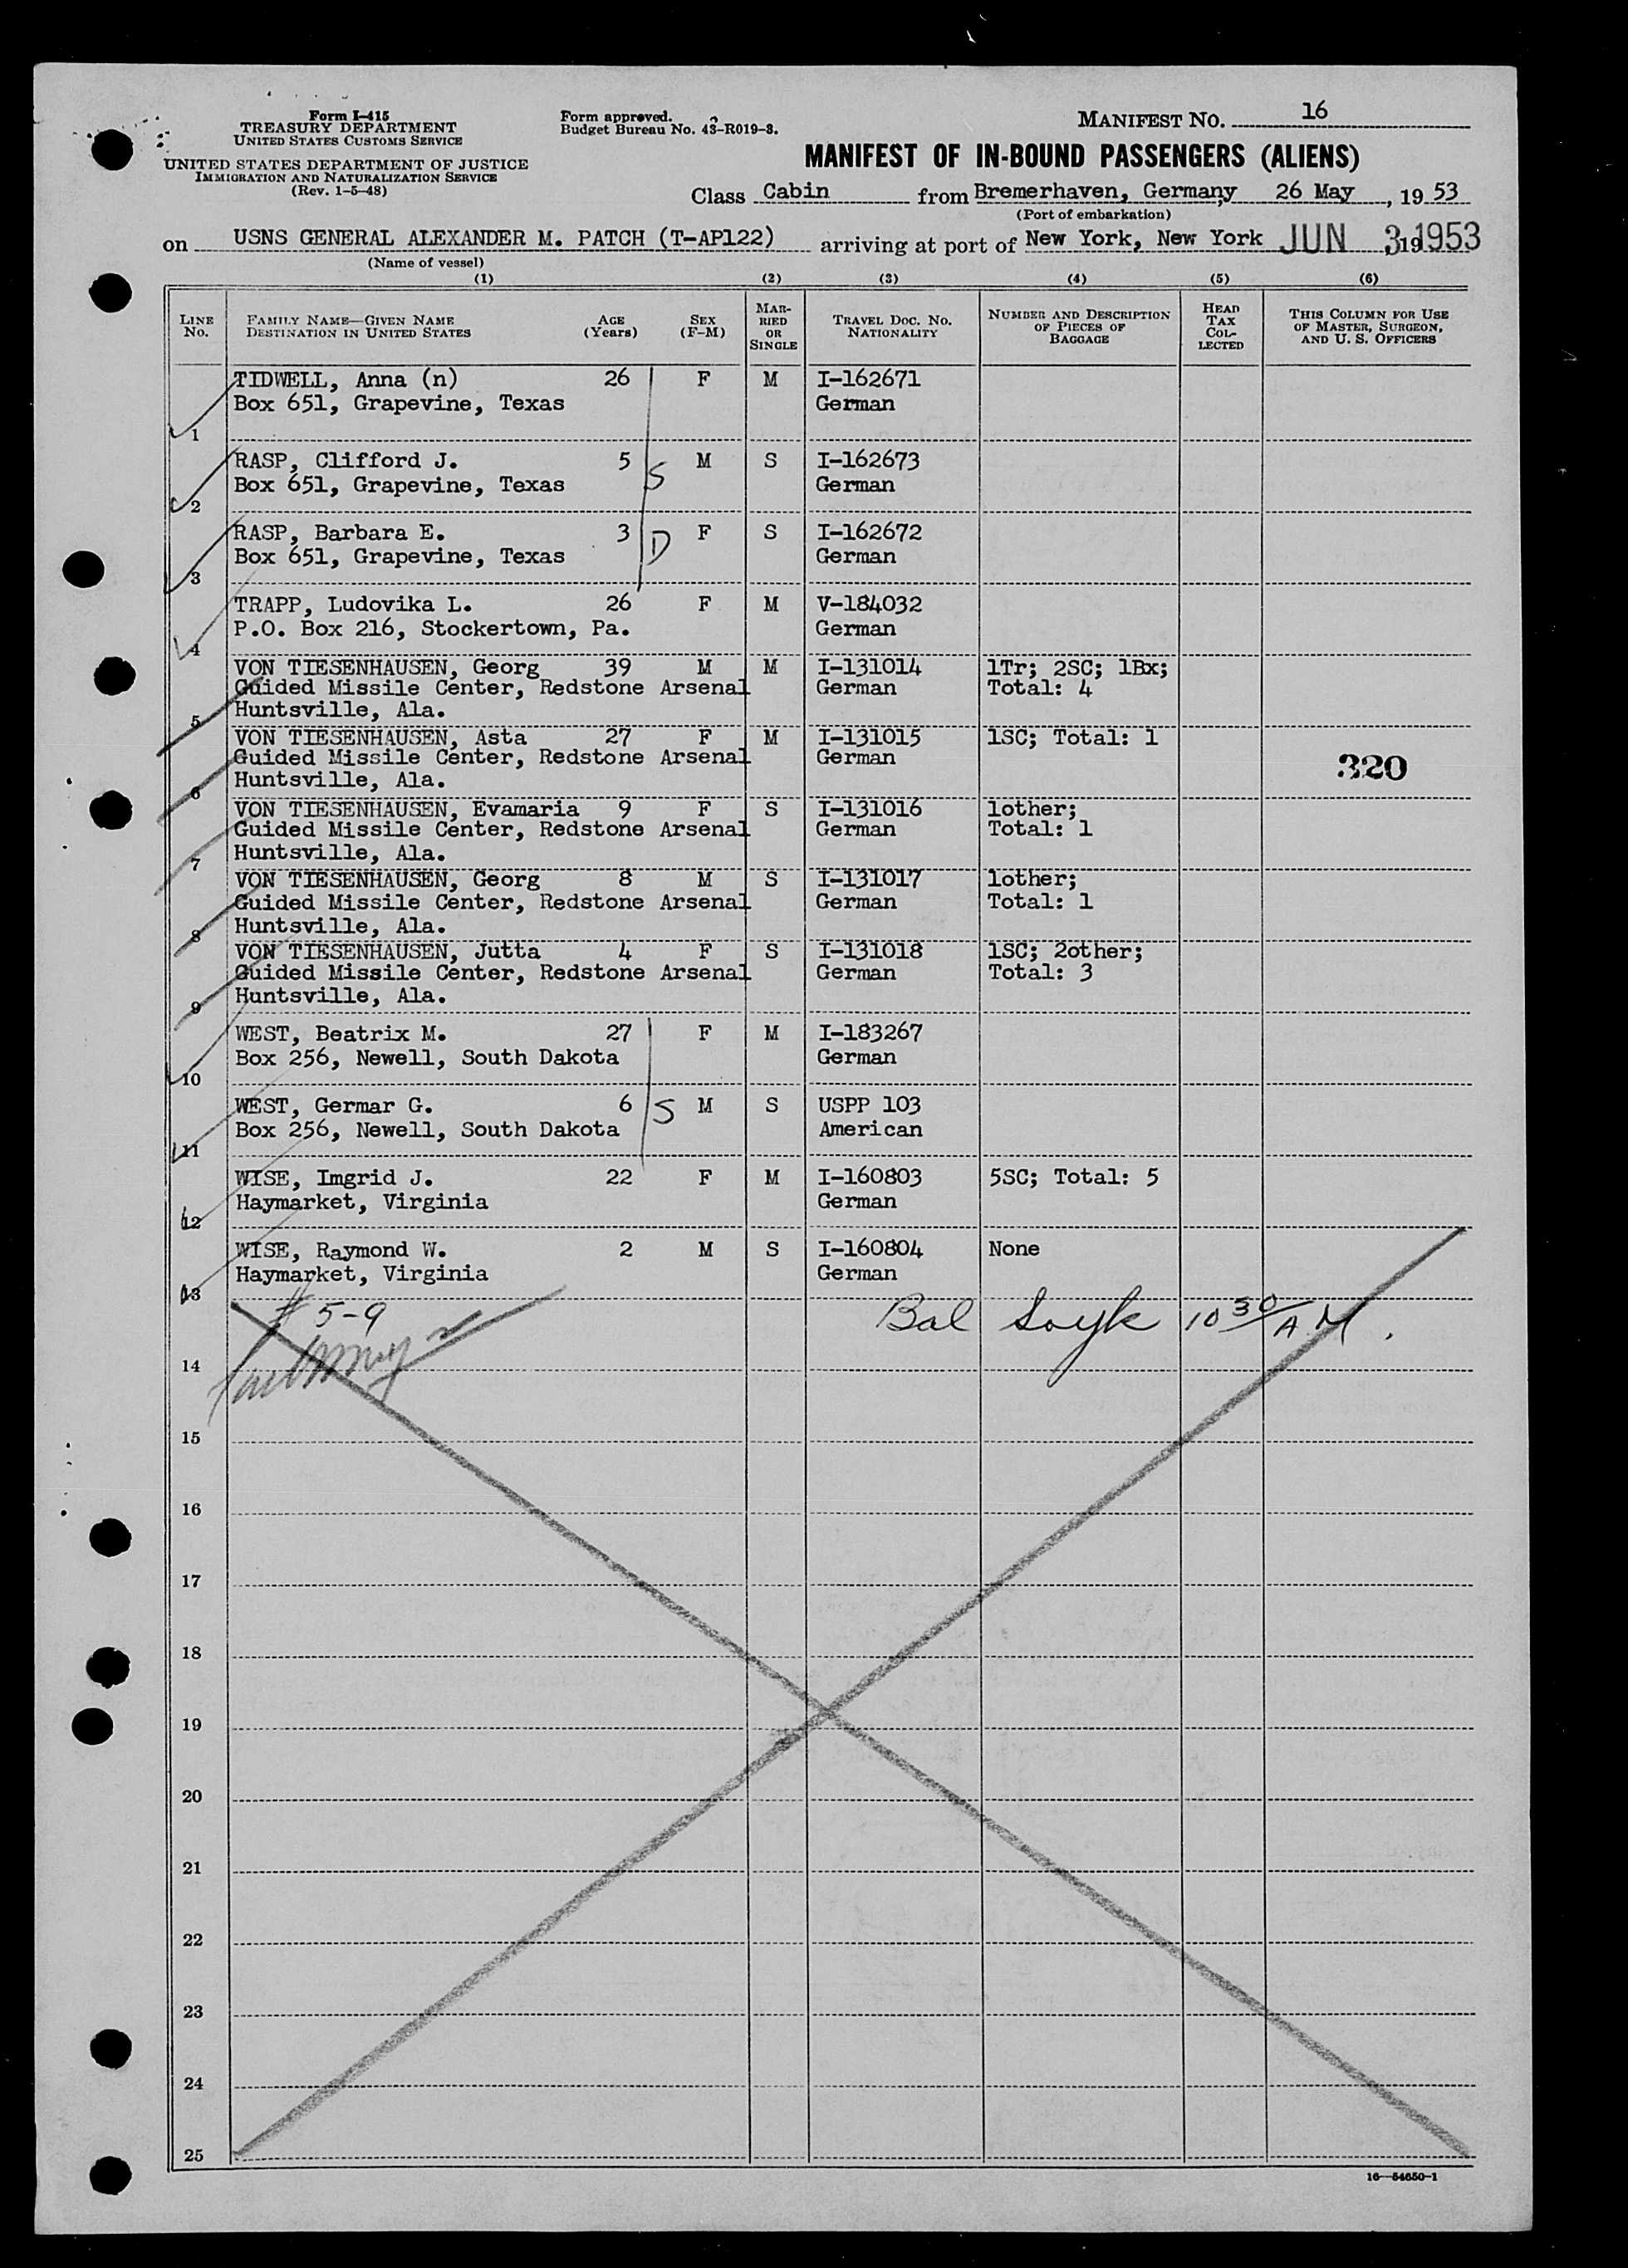 Form I-415
TREASURY DEPARTMENT
UNITED STATES CUSTOMS SERVICE
UNITED STATES DEPARTMENT OF JUSTICE
IMMIGRATION AND NATURALIZATION SERVICE
(Rev. 1-5-48)
Form approved.
Budget Bureau No. 43-R019-3.
MANIFEST NO. 16
MANIFEST OF IN-BOUND PASSENGERS (ALIENS)
Class Cabin from Bremerhaven, Germany, 26 May, 19 53
(Port of embarkation)
on USNS GENERAL ALEXANDER M. PATCH (T-AP122) arriving at port of New York, New York JUN 3 19 1953
(Name of vessel)
(1) (2) (3) (4) (5) (6)
LINE No. FAMILY NAME—GIVEN NAME DESTINATION IN UNITED STATES AGE (Years) SEX (F-M) MARRIED OR SINGLE TRAVEL DOC. NO. NATIONALITY NUMBER AND DESCRIPTION OF PIECES OF BAGGAGE HEAD TAX COLLECTED THIS COLUMN FOR USE OF MASTER, SURGEON, AND U. S. OFFICERS
TIDWELL, Anna (n) 26 F M I-162671
Box 651, Grapevine, Texas German
1
RASP, Clifford J. 5 S M S I-162673
Box 651, Grapevine, Texas German
2
RASP, Barbara E. 3 D F S I-162672
Box 651, Grapevine, Texas German
3
TRAPP, Ludovika L. 26 F M V-184032
P.O. Box 216, Stockertown, Pa. German
4
VON TIESENHAUSEN, Georg 39 M M I-131014 1Tr; 2SC; 1Bx;
Guided Missile Center, Redstone Arsenal German Total: 4
5 Huntsville, Ala.
VON TIESENHAUSEN, Asta 27 F M I-131015 1SC; Total: 1
Guided Missile Center, Redstone Arsenal German 320
6 Huntsville, Ala.
VON TIESENHAUSEN, Evamaria 9 F S I-131016 1other;
Guided Missile Center, Redstone Arsenal German Total: 1
7 Huntsville, Ala.
VON TIESENHAUSEN, Georg 8 M S I-131017 1other;
Guided Missile Center, Redstone Arsenal German Total: 1
8 Huntsville, Ala.
VON TIESENHAUSEN, Jutta 4 F S I-131018 1SC; 2other;
Guided Missile Center, Redstone Arsenal German Total: 3
9 Huntsville, Ala.
WEST, Beatrix M. 27 F M I-183267
Box 256, Newell, South Dakota German
10
WEST, Germar G. 6 S M S USPP 103
Box 256, Newell, South Dakota American
11
WISE, Imgrid J. 22 F M I-160803 5SC; Total: 5
Haymarket, Virginia German
12
WISE, Raymond W. 2 M S I-160804 None
Haymarket, Virginia German
13
# 5-9 Bal 10 30/A.M.
14
15
16
17
18
19
20
21
22
23
24
25
16—54650-1